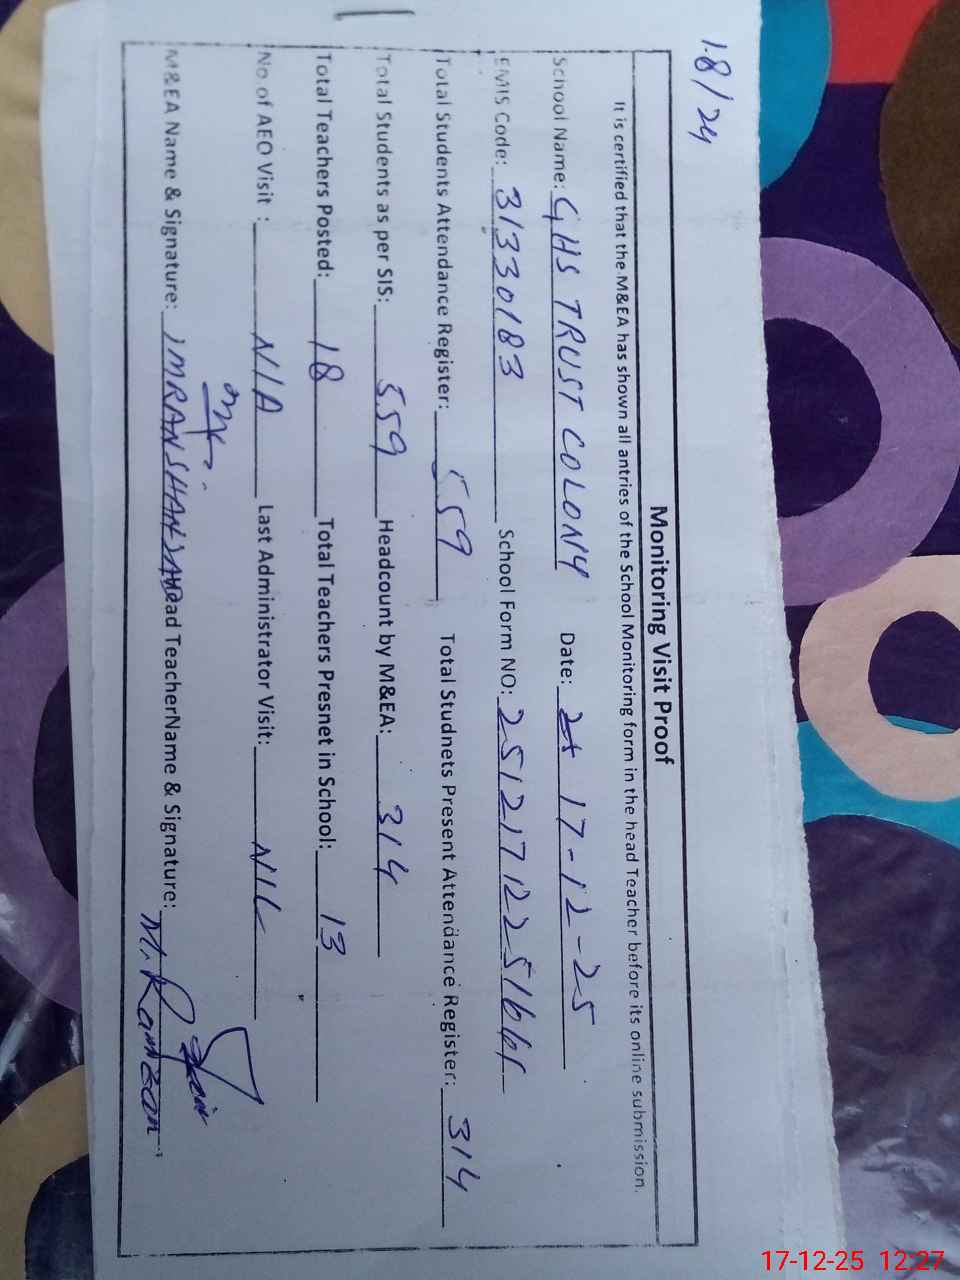 18/24
Monitoring Visit Proof
It is certified that the M&EA has shown all antries of the School Monitoring form in the head Teacher before its online submission.
School Name: GHS TRUST COLONY Date: 17-12-25
EMIS Code: 31330183 School Form NO:
Total Students Attendance Register: 559 Total Studnets Present Attendance Register: 314
Total Students as per SIS: 559 Headcount by M&EA: 314
Total Teachers Posted: 18 Total Teachers Presnet in School: 13
No of AEO Visit : N/A Last Administrator Visit: NIL
M&EA Name & Signature: IMRAN SHAHZAD ead TeacherName & Signature: M. Ramzan
17-12-25 12:27